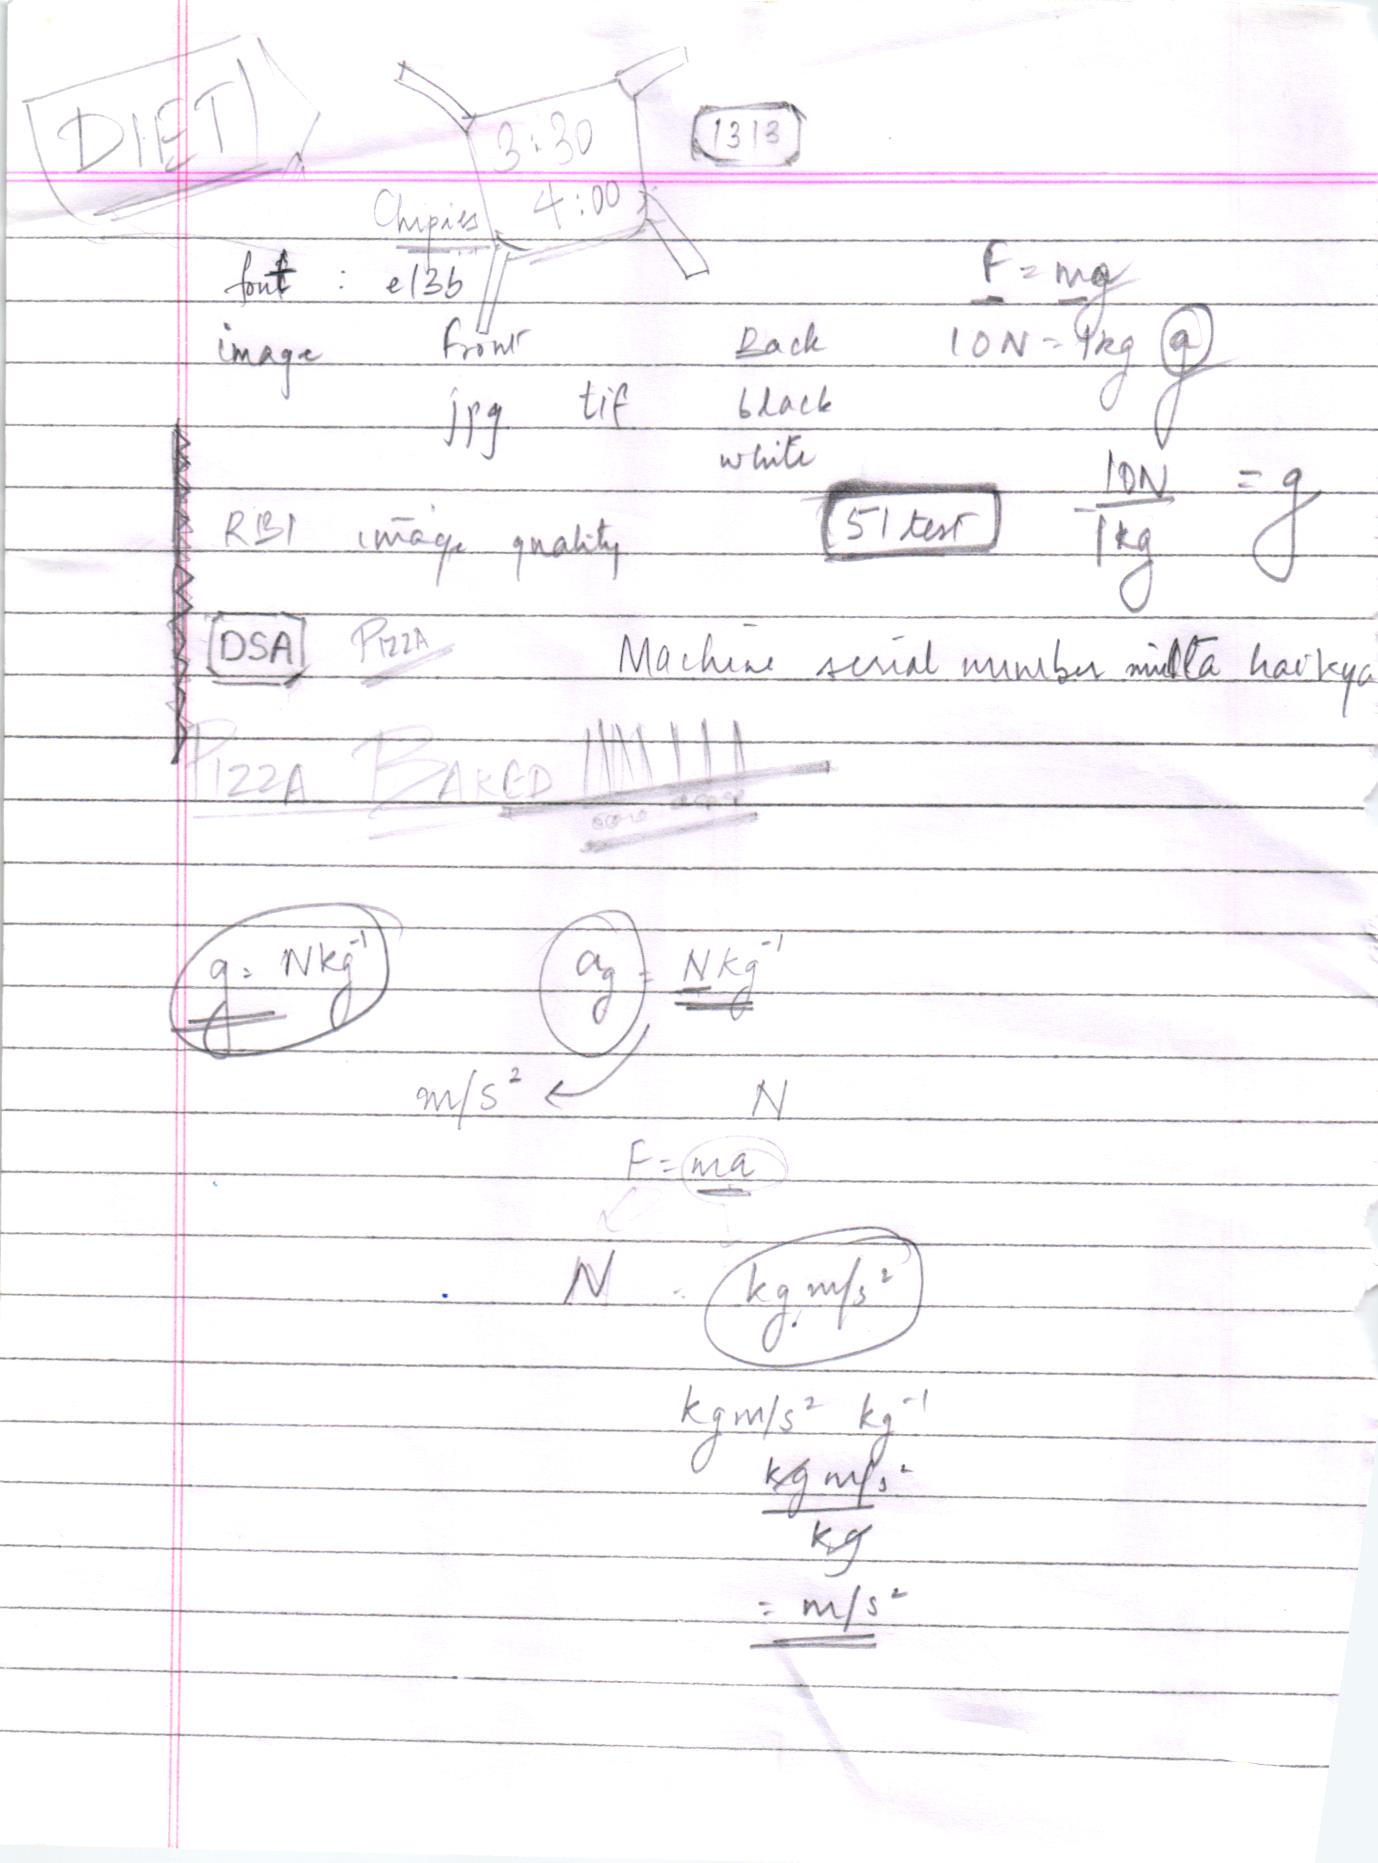 DIET
3:30
1313
4:00
Chipies
font : e13b
F = mg
image front Back 10N = 1kg g
jpg tif black
white
10N = g
1kg
RBI image quality 51 test
DSA PIZZA Machine serial number milta hai kya
PIZZA BAKED
g = Nkg⁻¹ ag = Nkg⁻¹
m/s² N
F = ma
N kg m/s²
kgm/s² kg⁻¹
kg m/s²
kg
= m/s²